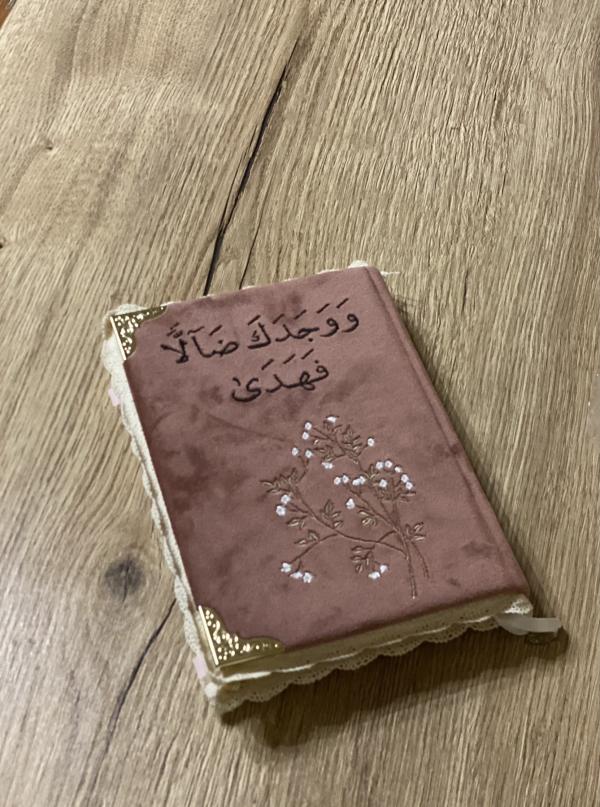 وَوَجَدَكَ ضَآلًّا
فَهَدَىٰ